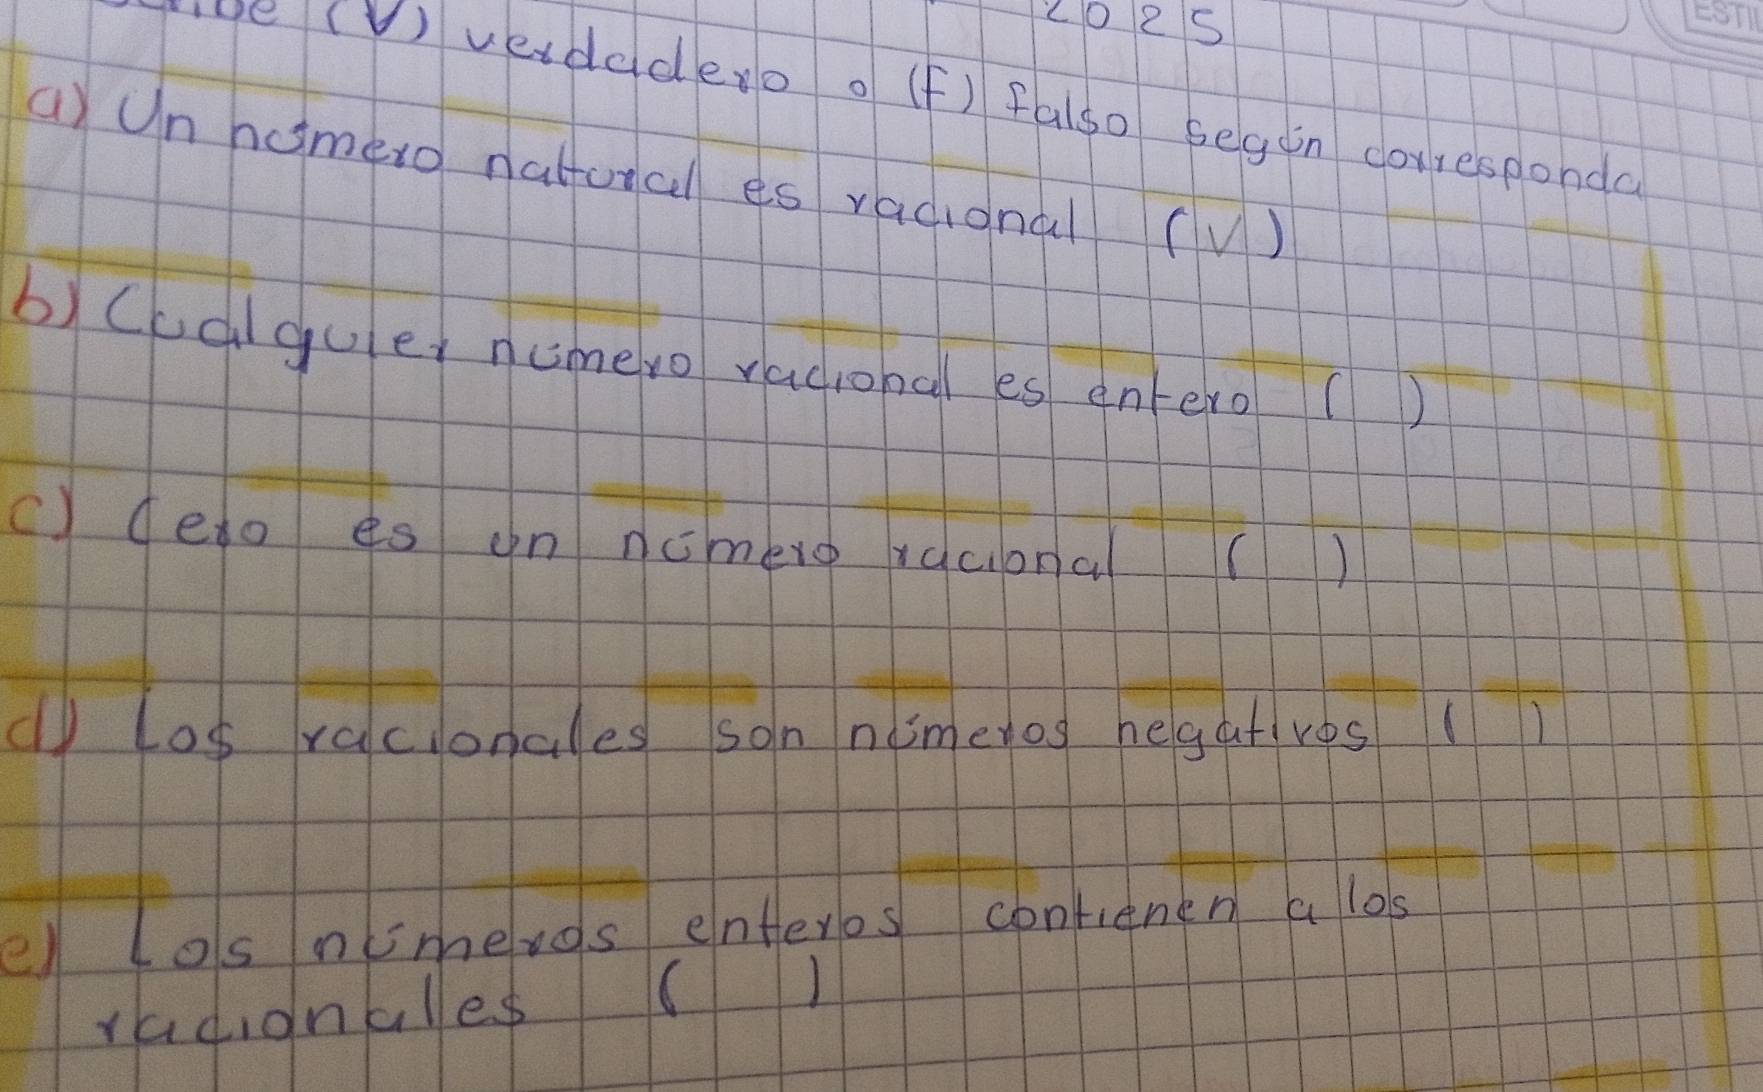 2025
(V) verdadero o (F) falso según corresponda
a) Un número natural es racional (V)
b) Cualquier número racional es entero ( )
c) Cero es un número racional ( )
d) Los racionales son números negativos ( )
e) Los números enteros contienen a los
racionales ( )